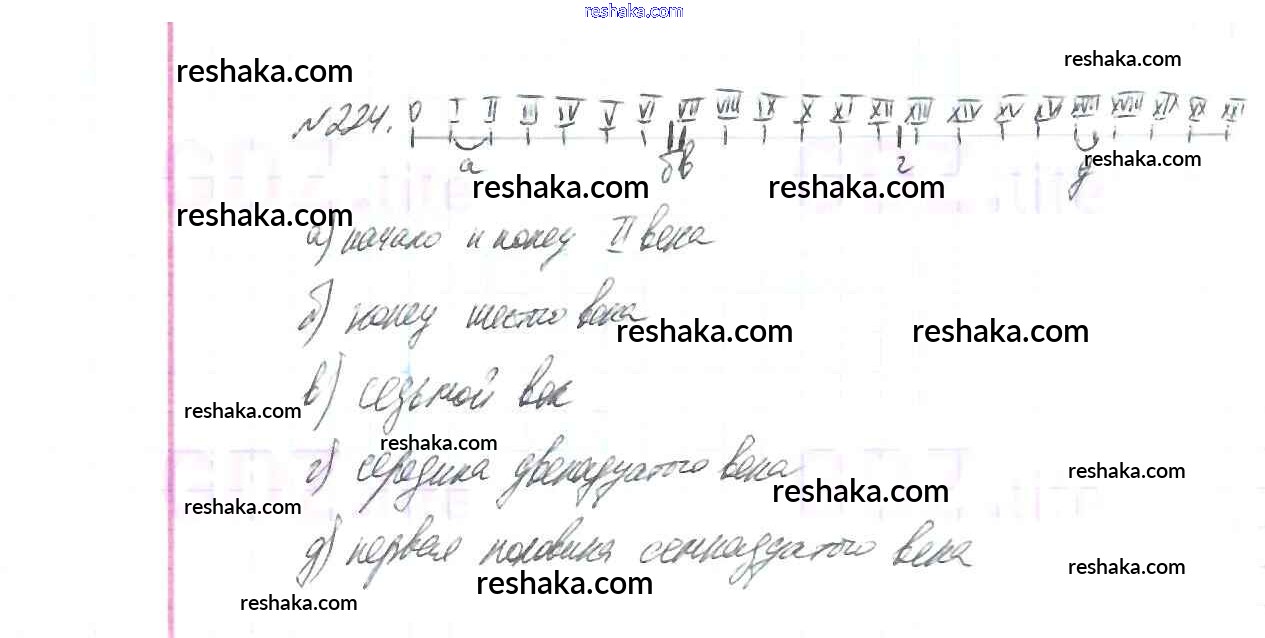 reshaka.com
reshaka.com
reshaka.com
№224. 0 I II III IV V VI VII VIII IX X XI XII XIII XIV XV XVI XVII XVIII XIX XX XXI
а б в г д
reshaka.com
reshaka.com
reshaka.com
reshaka.com
а) начало и конец II века
б) конец шестого века
reshaka.com
reshaka.com
в) седьмой век
reshaka.com
reshaka.com
г) середина двенадцатого века
reshaka.com
reshaka.com
reshaka.com
д) первая половина семнадцатого века
reshaka.com
reshaka.com
reshaka.com